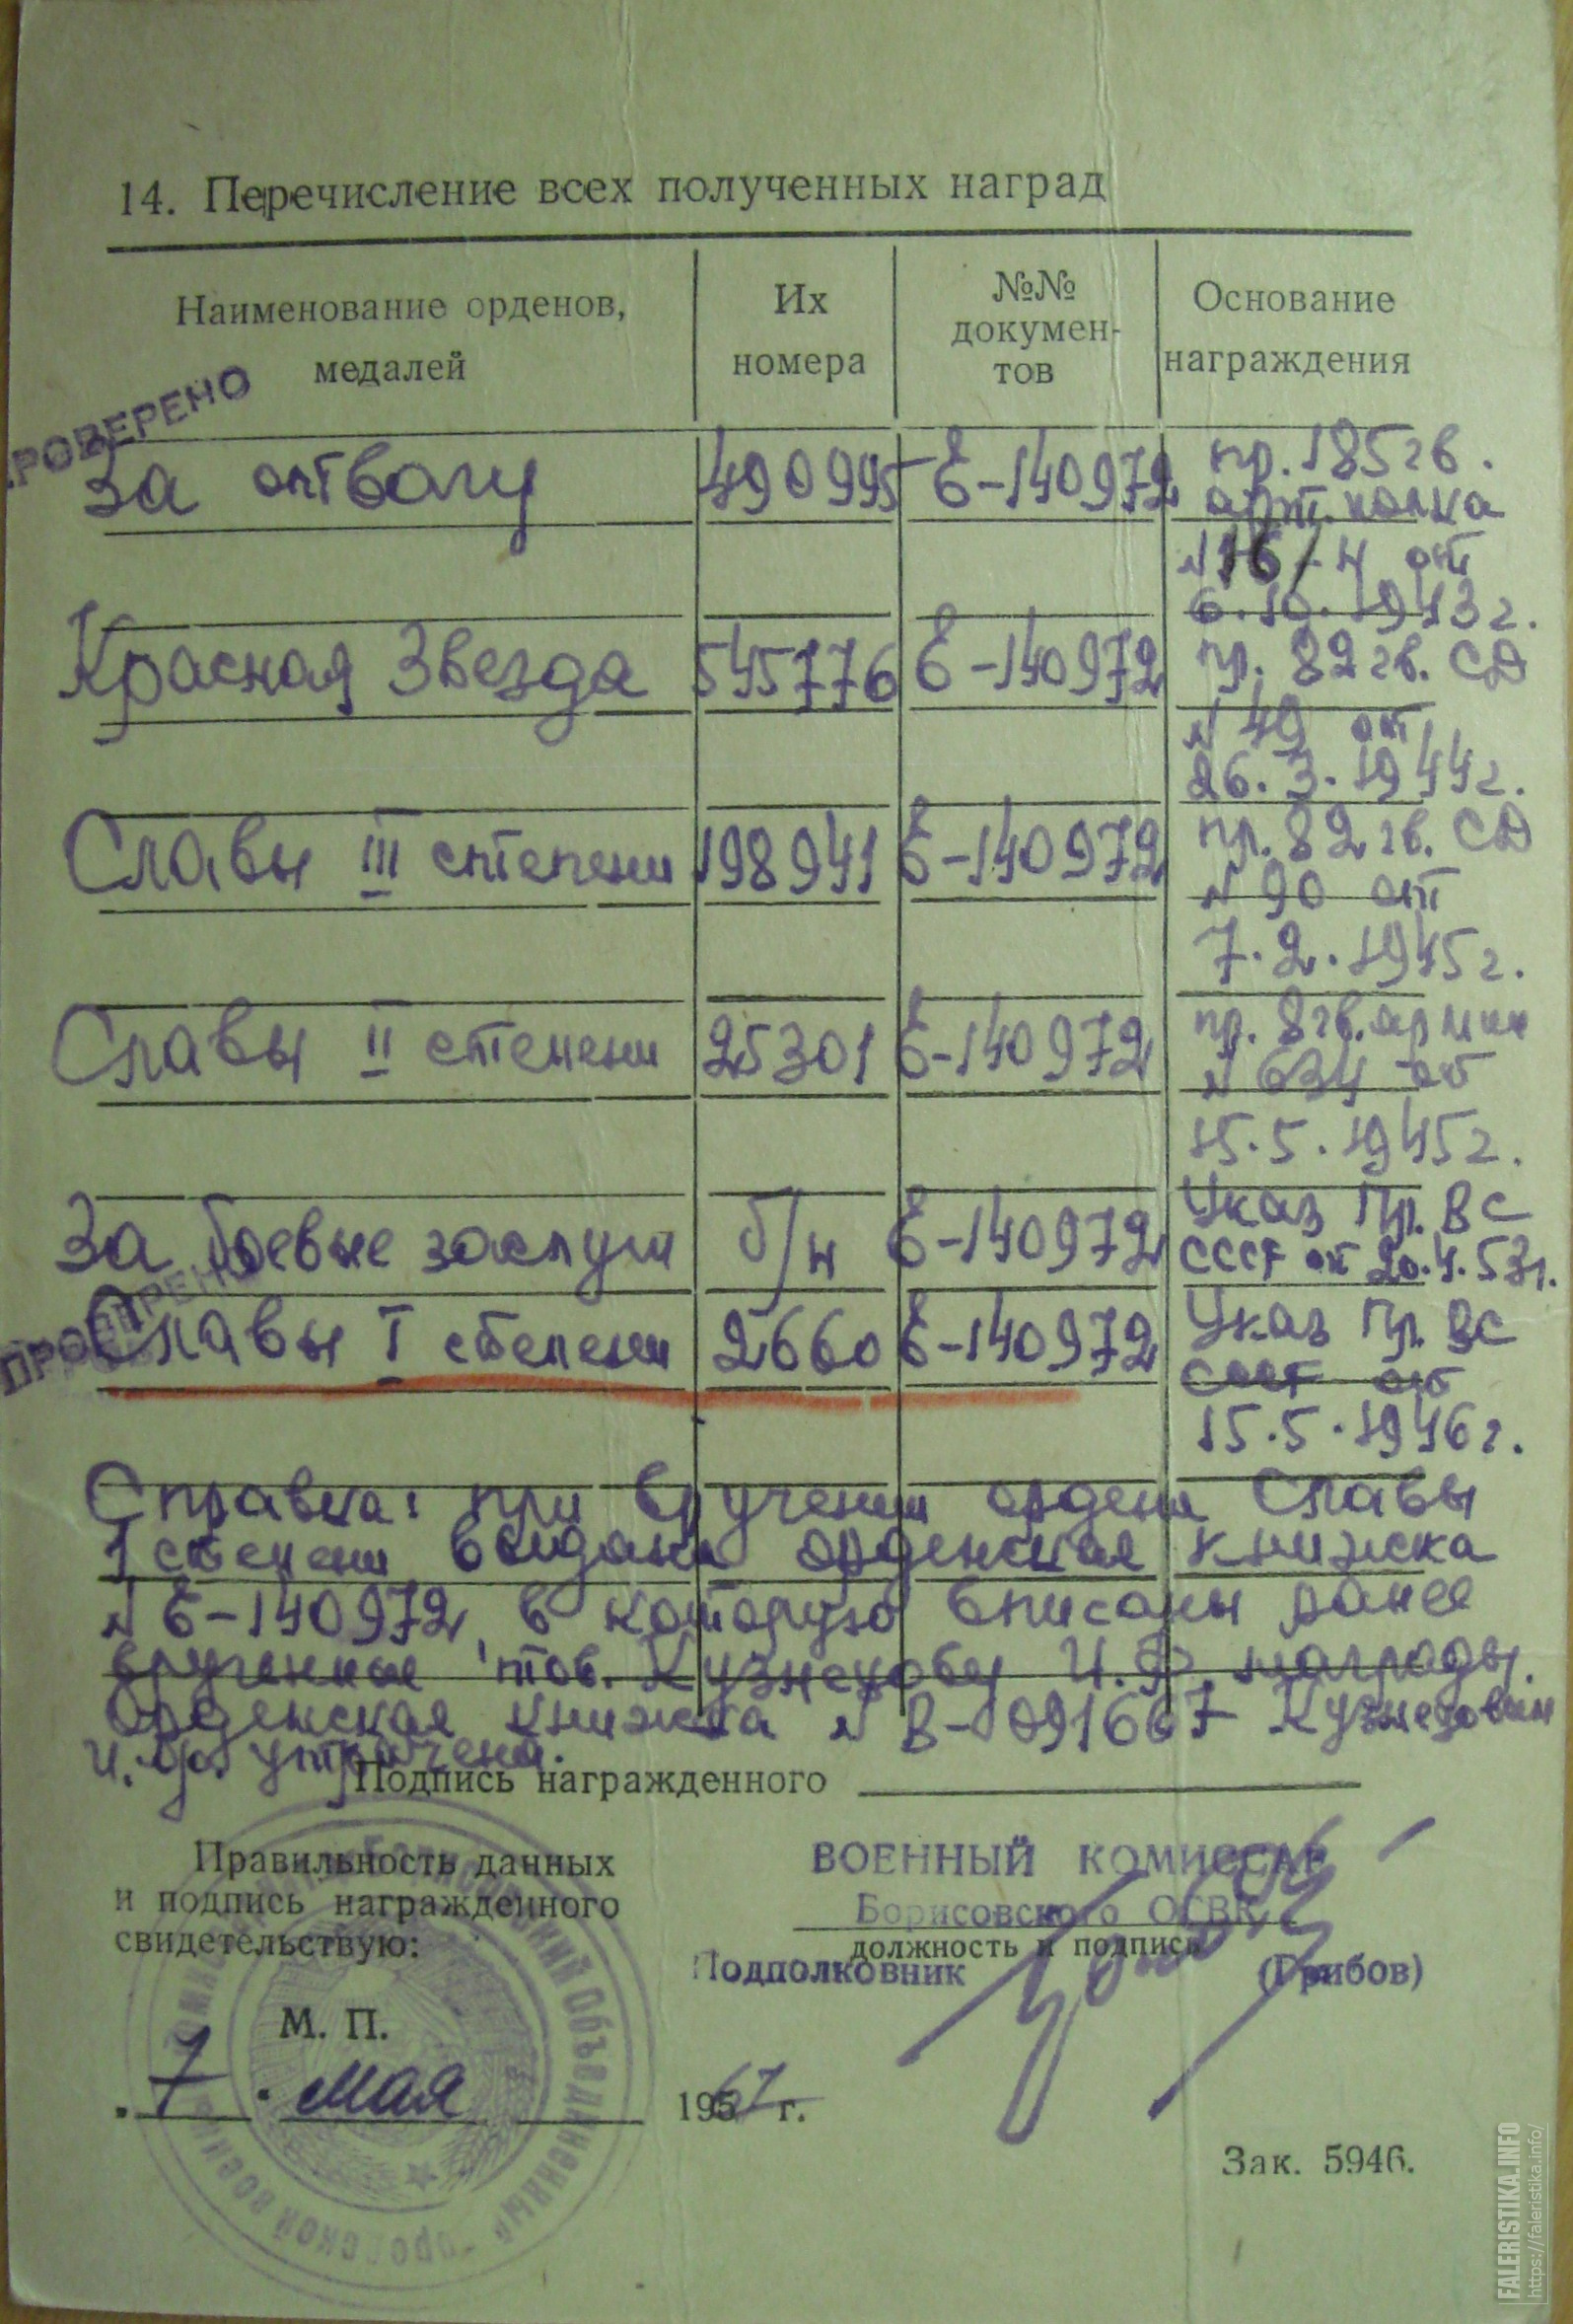 14. Перечисление всех полученных наград
Наименование орденов, медалей
Их номера
№№ докумен-
тов
Основание награждения
РОВЕРЕНО
За отвагу 490995 Е-140972 пр. 185 гв.
арт. полка
от
6.10.1943 г.
Красная Звезда 545776 Е-140972 пр. 82 гв. СД
N 49 от
26.3.1944 г.
Славы III степени 198941 Е-140972 пр. 82 гв. СД
N 90 от
7.2.1945 г.
Славы II степени 25301 Е-140972 пр. 8 гв. армии
N 634 от
15.5.1945 г.
За боевые заслуги б/н Е-140972 Указ Пр. ВС
СССР от 20.4.53г.
Славы I степени 2660 Е-140972 Указ Пр. ВС
СССР от
15.5.1946 г.
Справка: при вручении ордена Славы
1 степени выдана орденская книжка
N Е-140972, в которую вписаны ранее
врученные тов. Кузнецову И.Ф. награды.
Орденская книжка N В-091667 Кузнецовым
И.Ф. утрачена.
Подпись награжденного
Правильность данных
и подпись награжденного
свидетельствую:
ВОЕННЫЙ КОМИССАР
Борисовского ОГВК
должность и подпись
Подполковник (Грибов)
М. П.
7 мая 1967 г.
Зак. 5946.
FALERISTIKA.INFO
https://faleristika.info/